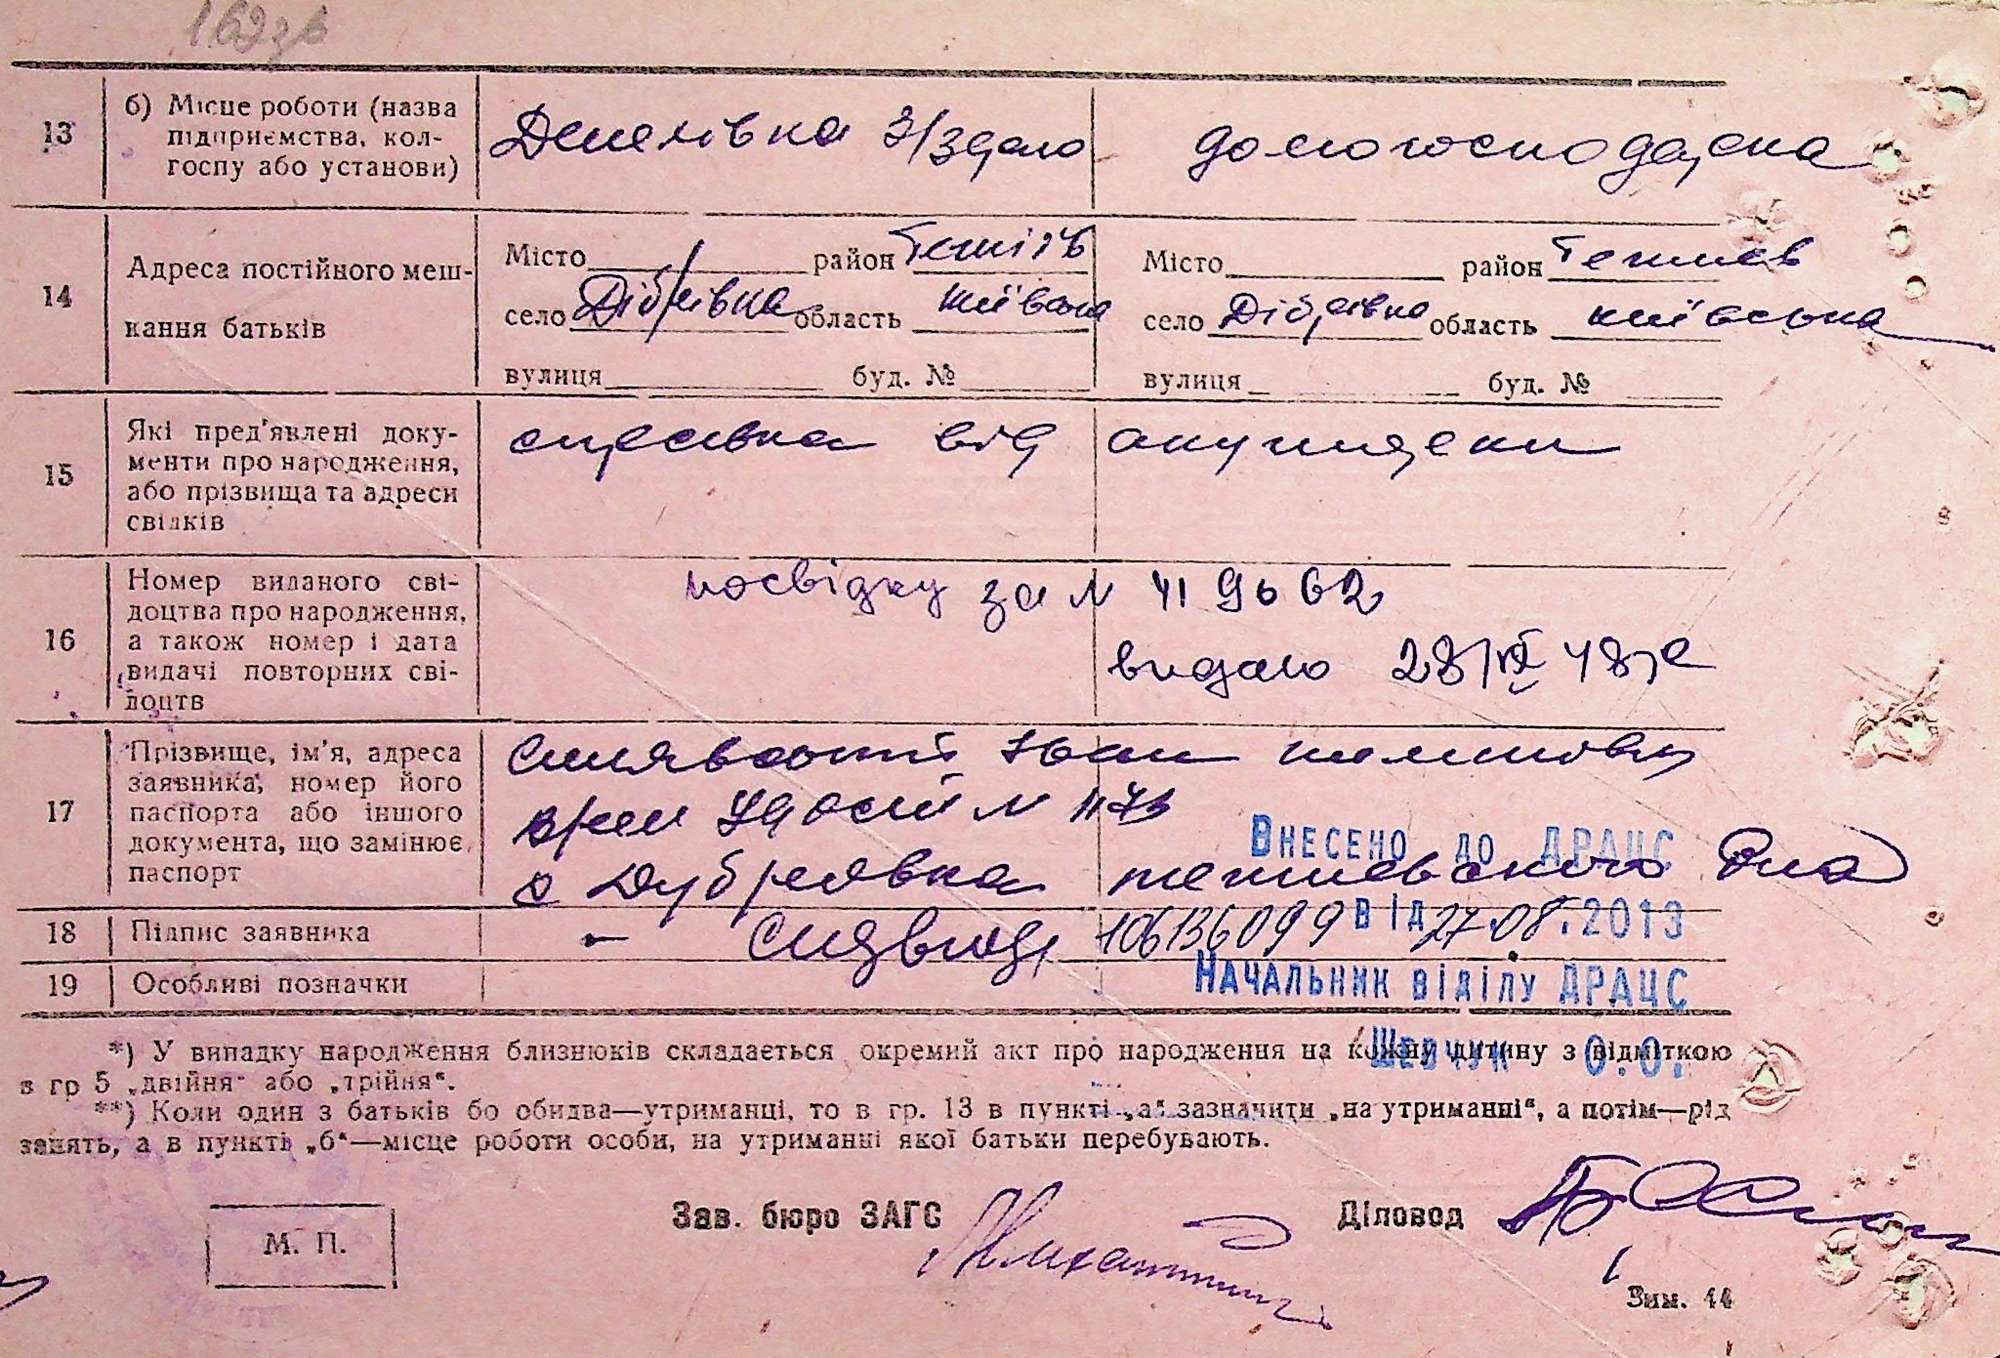 13 б) Місце роботи (назва підприємства, колгоспу або установи)
домогосподарка
14 Адреса постійного мешкання батьків
Місто район Тетіїв
село Дібрівка область Київська
вулиця буд. №
Місто район Тетиев
село Дібрівка область Київська
вулиця буд. №
15 Які пред'явлені документи про народження, або прізвища та адреси свідків
справка від акушерки
16 Номер виданого свідоцтва про народження, а також номер і дата видачі повторних свідоцтв
посвідку за №
видано 28/VI 48 р
17 Прізвище, ім'я, адреса заявника, номер його паспорта або іншого документа, що замінює паспорт
Іван
с Дубровка тетиевского
Внесено до ДРАЦС
18 Підпис заявника
106136099 від 27.08.2013
19 Особливі позначки
Начальник відділу ДРАЦС
Шевчук О.О.
*) У випадку народження близнюків складається окремий акт про народження на кожну дитину з відміткою
в гр 5 „двійня" або „трійня".
**) Коли один з батьків бо обидва—утриманці, то в гр. 13 в пункті „а" зазначити „на утриманні", а потім—рід
занять, а в пункті „б"—місце роботи особи, на утриманні якої батьки перебувають.
М. П.
Зав. бюро ЗАГС
Діловод
Зим. 44